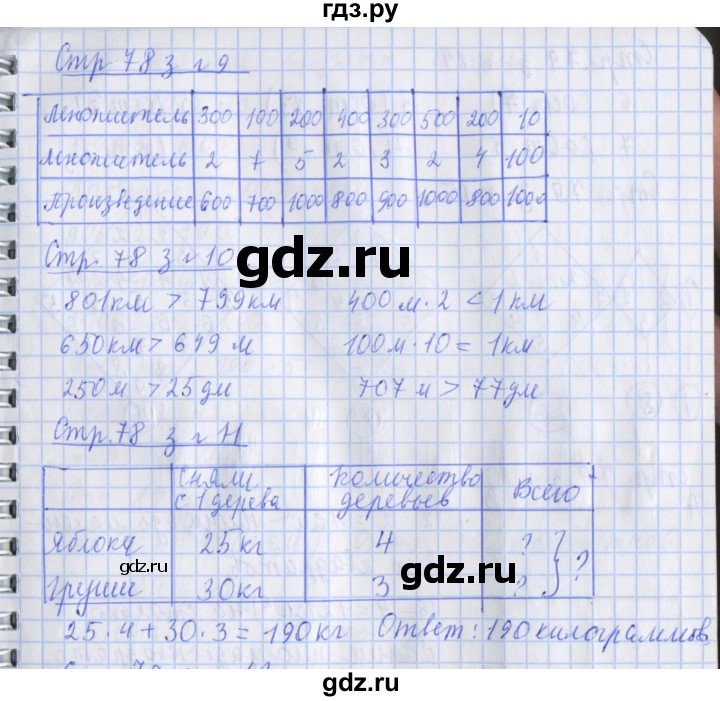 гдз.ру
Стр 78 з №9
Множитель 300 100 200 400 300 500 200 10
Множитель 2 7 5 2 3 2 4 100
Произведение 600 700 1000 800 900 1000 800 1000
gdz.ru
Стр. 78 з №10
801км > 799км 400 м·2 < 1 км
650км > 649 м 100м·10 = 1км
250м > 25дм 707 м > 77дм
Стр.78 з №11
сняли с 1 дерева количество деревьев Всего
Яблоки 25кг 4 ?
gdz.ru gdz.ru
Груши 30кг 3 ? } ?
25·4+30·3=190кг Ответ: 190 килограммов.
gdz.ru